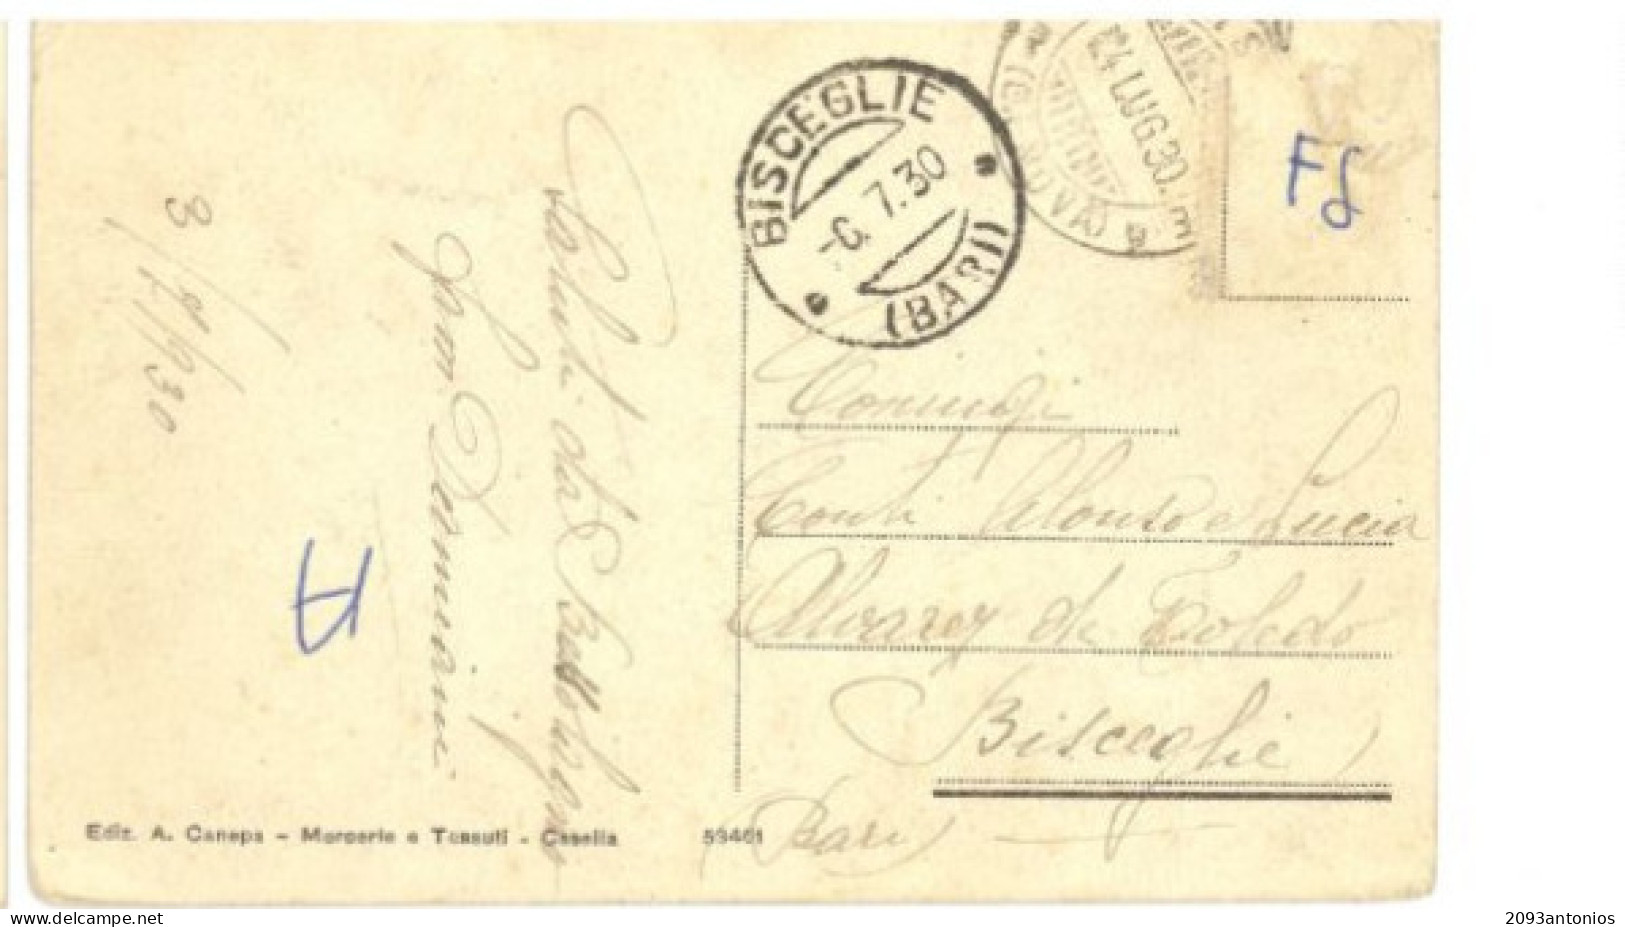 3/7/930
Saluti da
Gian Germano
A
BISCEGLIE
-6.7.30
(BARI)
4 LUG 30
FS
Coniugi
Conti Alonso e Lucia
Alvarez de Toledo
Bisceglie
(Bari)
Ediz. A. Canepa - Mercerie e Tessuti - Casella
53461
2093antonios